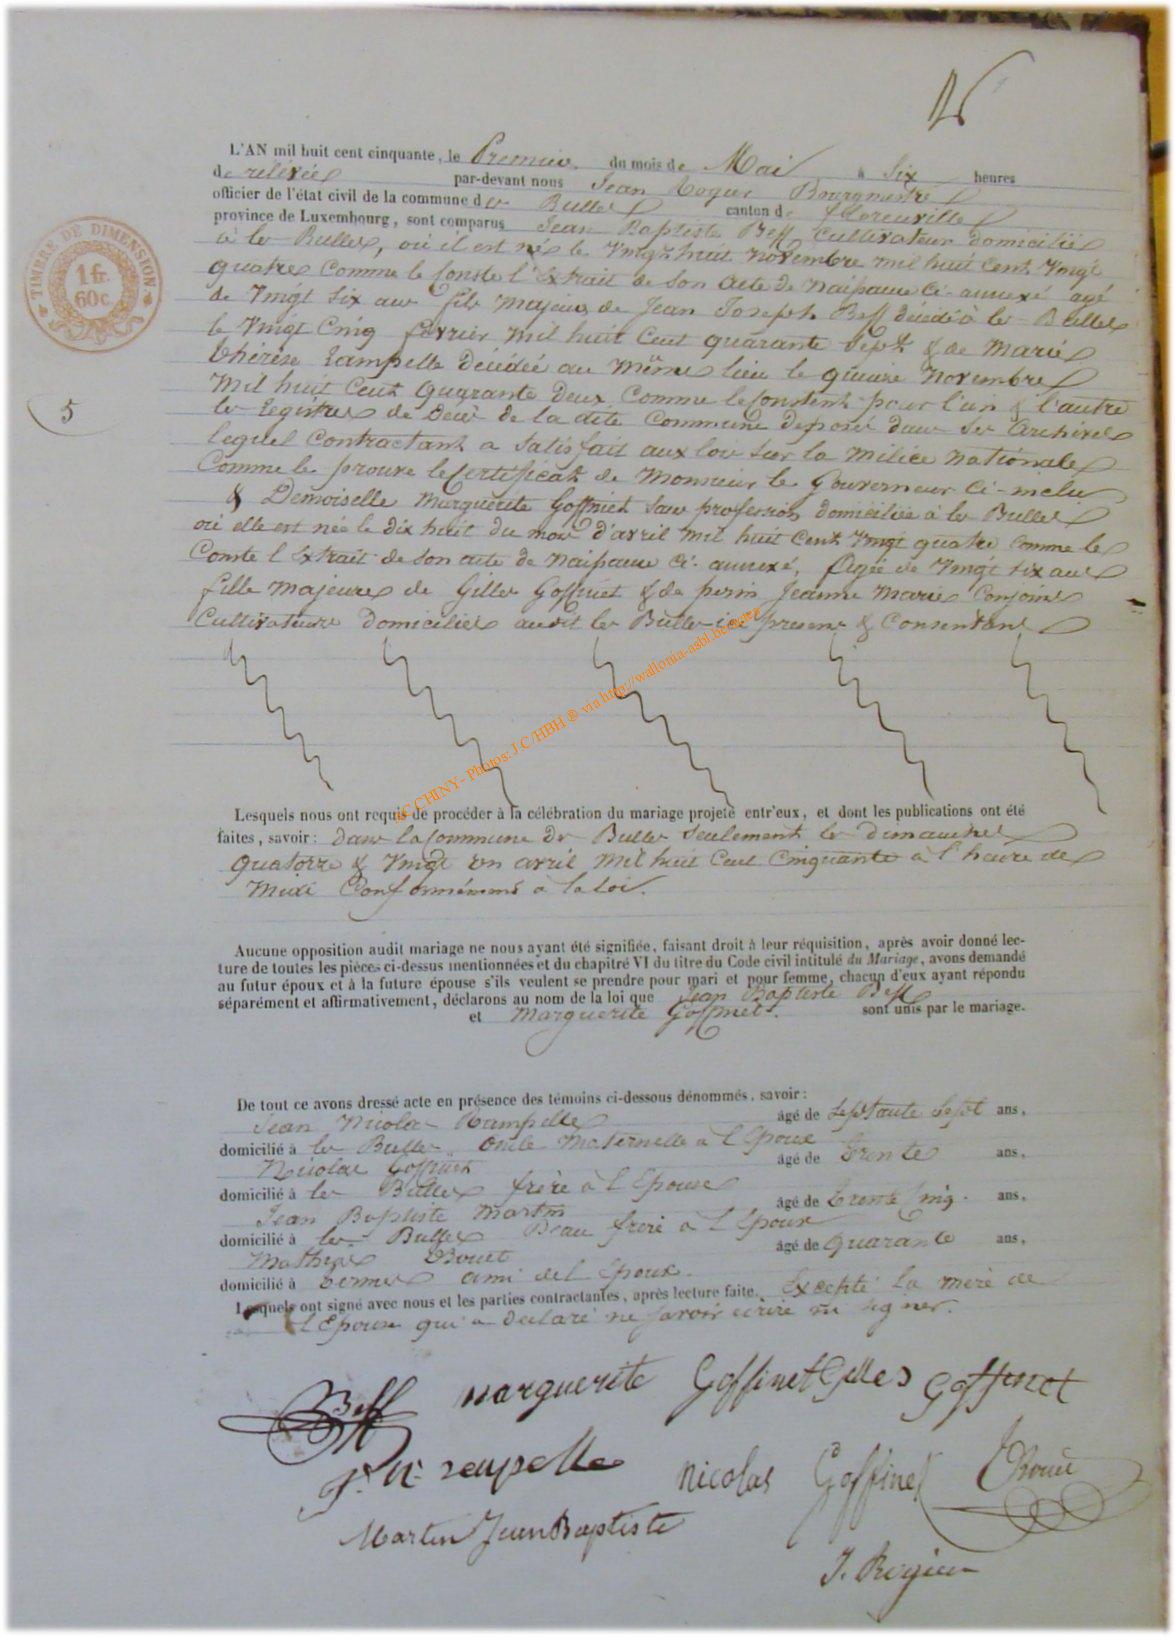 L'AN mil huit cent cinquante, le Premier du mois de Mai à Six heures
de rélévée par-devant nous Jean Bourgmestre
officier de l'état civil de la commune de Bulles canton de florenville
province de Luxembourg, sont comparus Jean Baptiste Beff Cultivateur domicilié
à les Bulles, où il est né le Vingt huit novembre mil huit Cent Vingt
quatre Comme le Conste l'Extrait de Son acte de Naissance Ci-annexé agé
de Vingt Six ans fils majeur de Jean Joseph Beff décédé à les Bulles
le Vingt Cinq février mil huit Cent quarante Sept & de Marie
thérèse décédée au même lieu le quinze Novembre
Mil huit Cent Quarante Deux Comme le Constent pour l'un & l'autre
les registres de Décè de la dite Commune deposés dans Ses Archives
lequel Contractant a Satisfait aux lois Sur la Milice nationale
Comme le prouve le Certificat de Monsieur le Gouverneur Ci-inclu
& Demoiselle Marguerite Goffinet Sans profession domiciliée à les Bulles
où elle est née le dix huit du mois d'avril mil huit Cent Vingt quatre Comme le
Conste l'Extrait de son acte de Naissance Ci-annexé, Agée de Vingt Six ans
fille majeure de Gilles Goffinet & de perin Jeanne Marie Conjoins
Cultivateurs domiciliés audit les Bulles ici presens & Consentans
TIMBRE DE DIMENSION
1 fr.
60 c.
5
C CHINY - Photos: J.C/HBH ® via http://wallonia-asbl.be
Lesquels nous ont requis de procéder à la célébration du mariage projeté entr'eux, et dont les publications ont été
faites, savoir: dans la Commune des Bulles Seulement les dimanches
quatorze & Vingt un avril Mil huit Cent Cinquante à l'heure de
Midi Conformément à la loi.
Aucune opposition audit mariage ne nous ayant été signifiée, faisant droit à leur réquisition, après avoir donné lec-
ture de toutes les pièces ci-dessus mentionnées et du chapitré VI du titre du Code civil intitulé du Mariage, avons demandé
au futur époux et à la future épouse s'ils veulent se prendre pour mari et pour femme, chacun d'eux ayant répondu
séparément et affirmativement, déclarons au nom de la loi que Jean Baptiste Beff
et Marguerite Goffinet. sont unis par le mariage.
De tout ce avons dressé acte en présence des témoins ci-dessous dénommés, savoir:
Jean Nicolas âgé de Septante Sept ans,
domicilié à les Bulles Oncle Maternelle à l'Epoux
Nicolas Goffinet âgé de Trente ans,
domicilié à les Bulles frère à l'Epouse
Jean Baptiste Martin âgé de Trente Cinq. ans,
domicilié à les Bulles Beau frère à l'Epoux
Mathias âgé de Quarante ans,
domicilié à termes ami de l'Epoux.
Lesquels ont signé avec nous et les parties contractantes, après lecture faite. Excepté la mère de
l'Epouse qui a declaré ne Savoir écrire ni Signer.
Beff Marguerite Goffinet Gilles Goffinet
Nicolas Goffinet
Martin Jean Baptiste